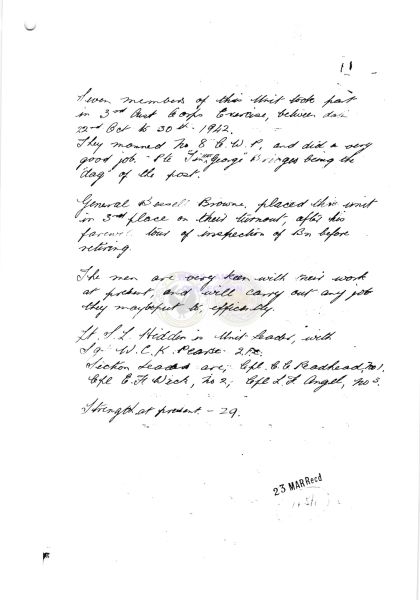 11
Seven members of this Unit took part
in 3rd Aust Corps Exercise, between dates
22nd Oct to 30th - 1942.
They manned No 8 C.W.P, and did a very
good job. Pte George Bridges being the
"dag" of the post.
General Browne, placed this unit
in 3rd place on their turnout, after his
farewell tour of inspection of Bn before
retiring.
The men are very keen with their work
at present, and will carry out any job
they may be put to, efficiently.
Lt. S.L. Hidden is Unit Leader, with
Sgt W.C.K. Pearse 2.I.C.
Section Leaders are; Cpl. C.C. Readhead, No 1,
Cpl E.H. Weck, No 2; Cpl L.L. Angel, No 3.
Strength at present - 29.
23 MAR Recd